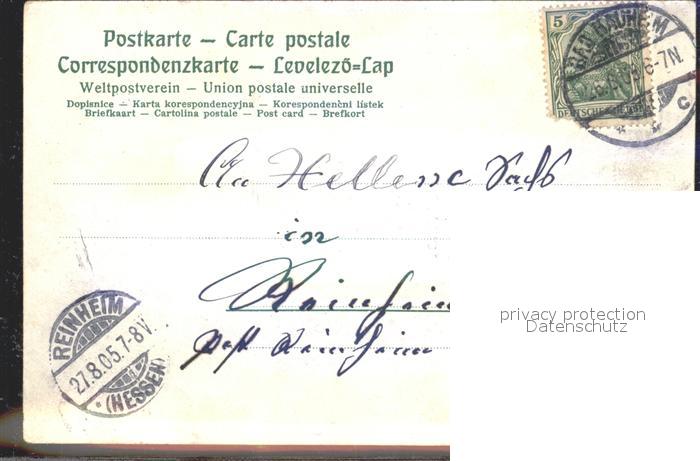 Postkarte – Carte postale
Correspondenzkarte – Levelező=Lap
Weltpostverein – Union postale universelle
Dopisnice – Karta korespondencyjna – Korespondenčni listek
Briefkaart – Cartolina postale – Post card – Brefkort
5
DEUTSCHES REICH
BAD NAUHEIM
6-7N.
c
An
in
Reinheim
Post Reinheim
REINHEIM
27.8.05.7-8V.
(HESSEN)
privacy protection
Datenschutz